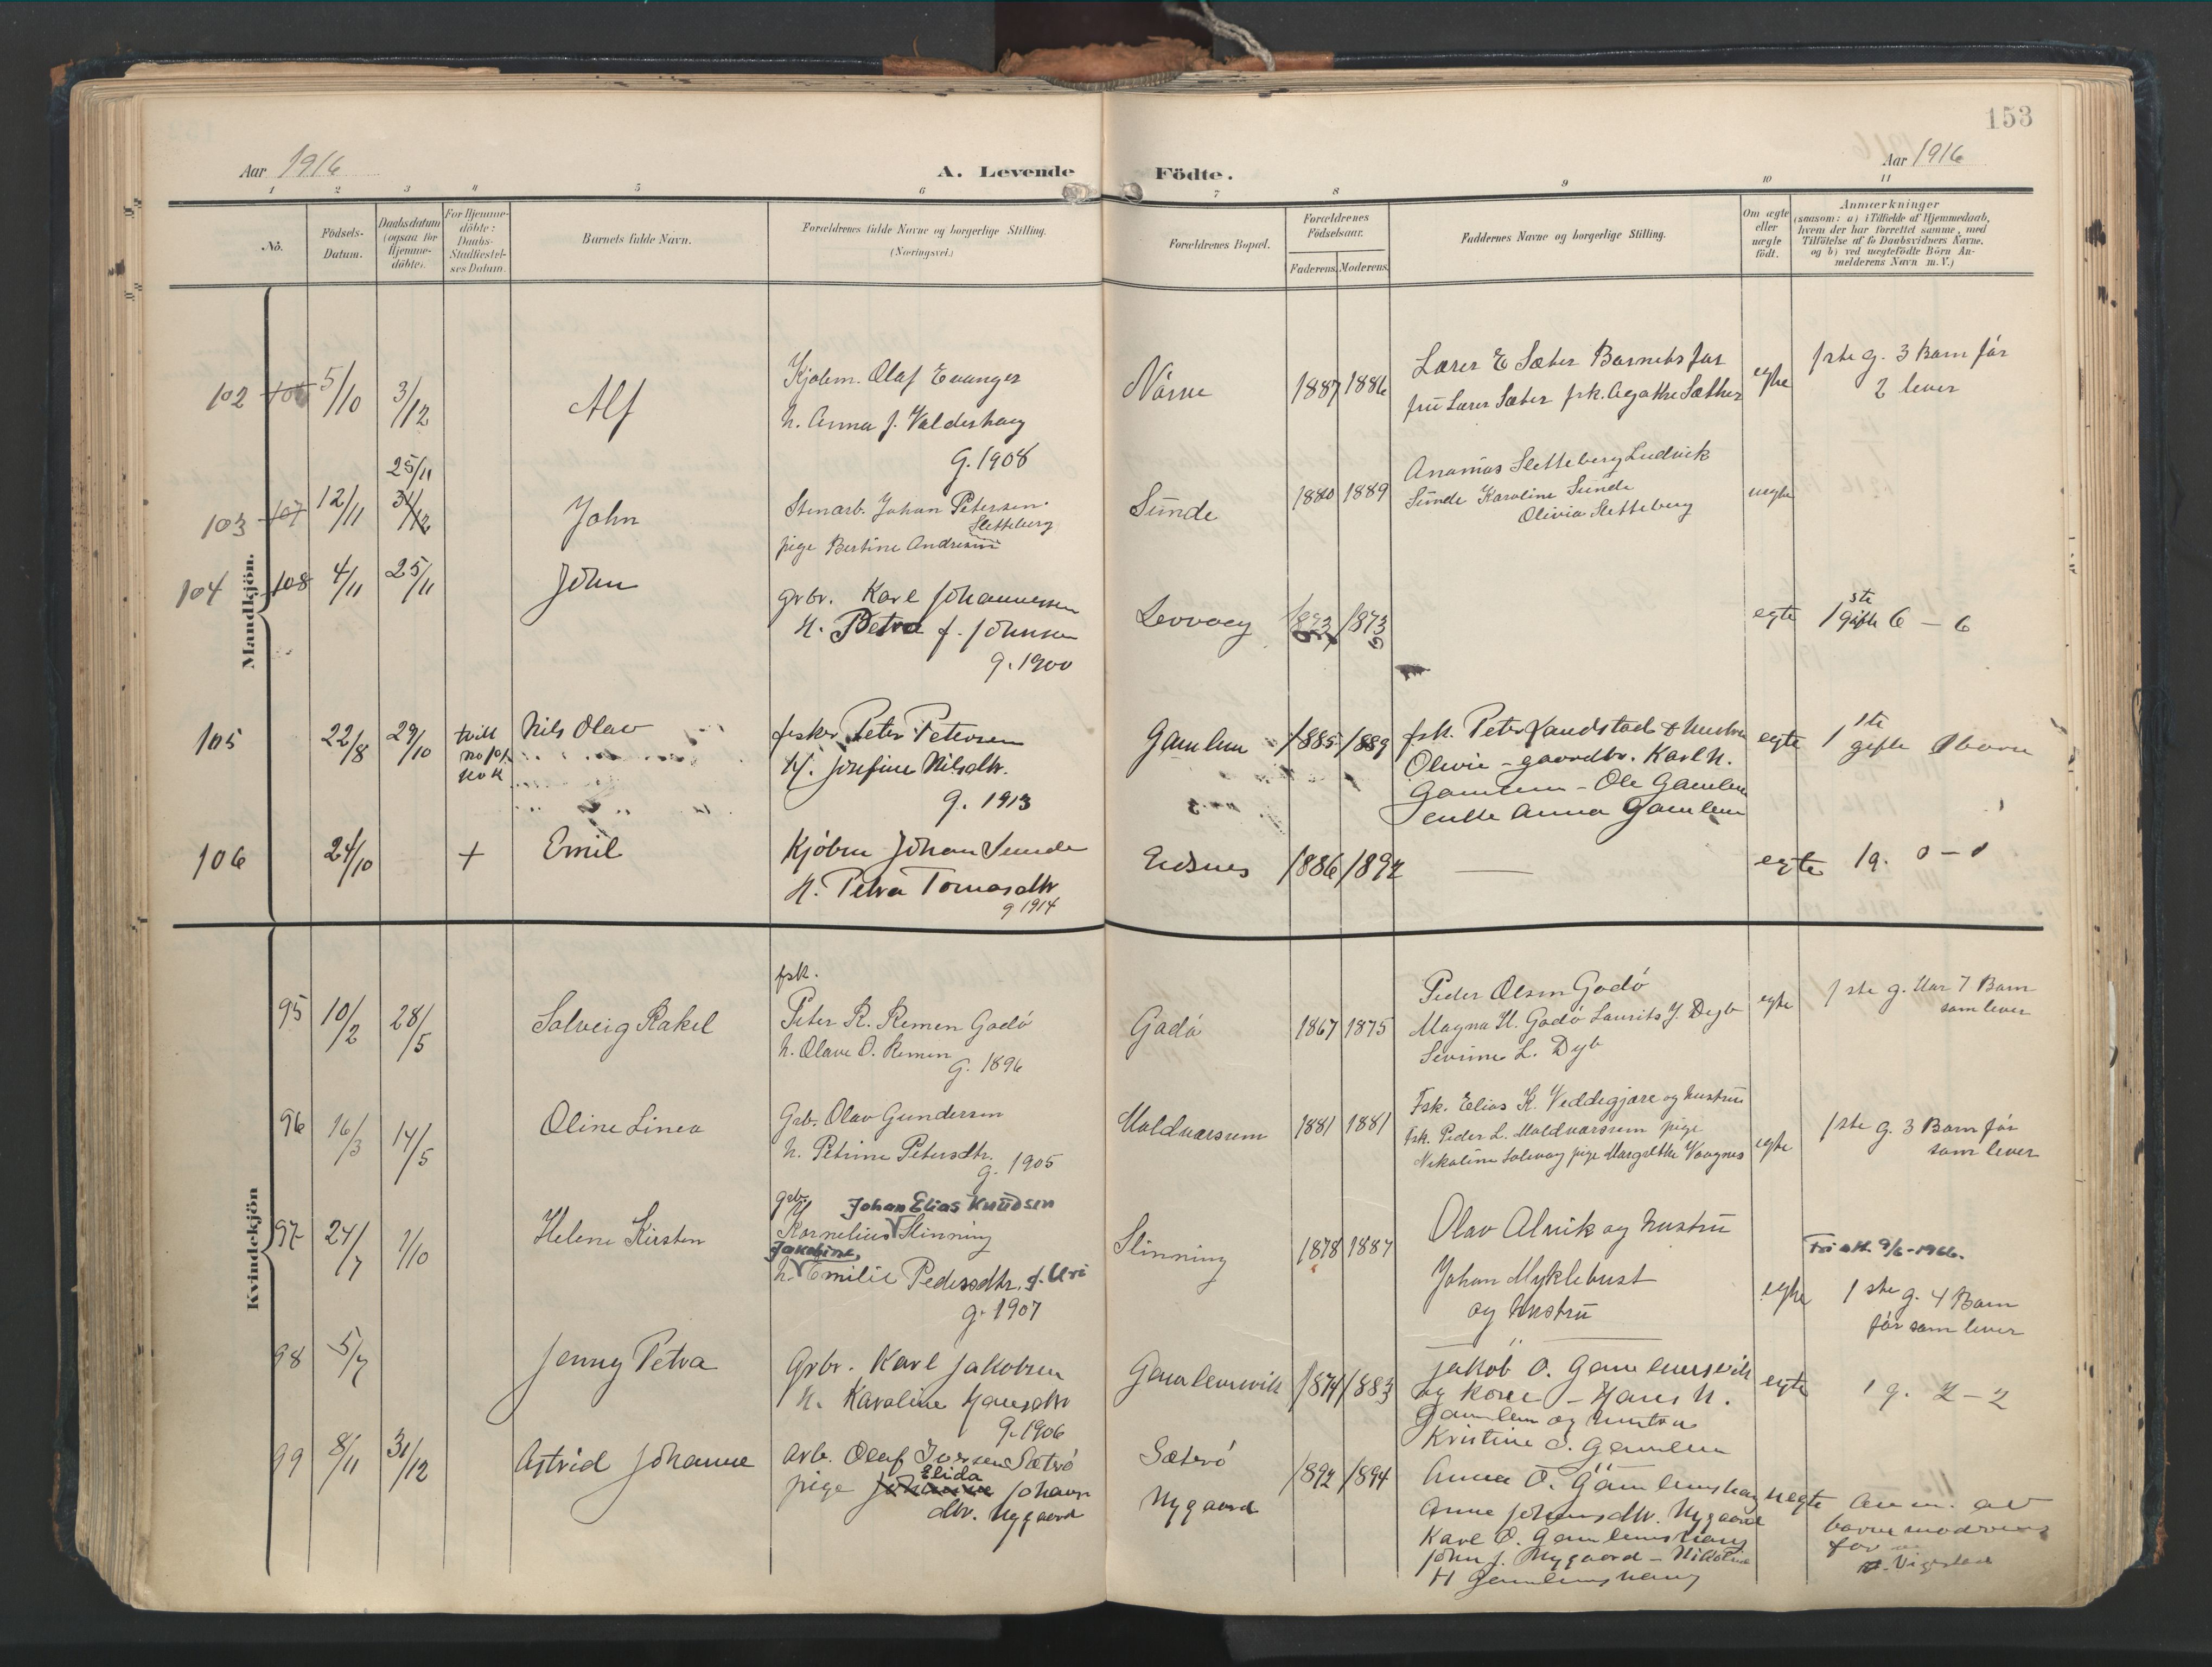 153
Aar 1916
A. Levende Födte.
Aar 1916
1 2 3 4 5 6 7 8 9 10 11
No.
Födsels-Datum.
Daabsdatum (ogsaa for Hjemme-döbte).
For Hjemme-döbte: Daabs-Stadfæstel-ses Datum.
Barnets fulde Navn.
Forældrenes fulde Navne og borgerlige Stilling.
(Næringsvei.)
Forældrenes Bopæl.
Forældrenes Födselsaar.
Faderens. Moderens.
Faddernes Navne og borgerlige Stilling.
Om ægte eller uægte födt.
Anmærkninger
(saasom: a) i Tilfælde af Hjemmedaab,
hvem der har forrettet samme, med
Tilföielse af to Daabsvidners Navne.
og b) ved uægtefödte Börn An-
melderens Navn m. V.)
Mandkjön.
102 106 5/10 3/12 Alf
Kjøbm. Olaf Evanger
h. Anna f. Valderhaug
g. 1908
Nørve 1887 1886
Lærer E Sæter Barnets far
fru Lærer Sæter frk. Agathe Sæther
egte
1ste g. 3 Barn før
2 lever
103 107 12/11 25/11 31/12 John
Stenarb. Johan Petersen
Sletteberg
pige Bertine Andresen
Sunde 1880 1889
Ananias Sletteberg Ludvik
Sunde Karoline Sunde
Olivia Sletteberg
uegte
104 108 4/11 25/11 John
grbr. Karl Johannessen
H. Petra f. Johnsen
g. 1900
1873 1873
egte 1ste gifte 6 – 6
105 22/8 29/10 Nils Olav
fisker Peter Petersen
H. Josefine Nilsdtr.
g. 1913
Gamlem 1885 1889
fsk. Peter Landstad & hustru
Olivie – gaardbr. Karl N.
Gamlem – Ole Gamlem
enke Anna Gamlem
egte 1ste gifte 0 barn
106 24/10 + Emil
Kjöbm Johan Sunde
H. Petra Tomasdtr
g 1914
Eidsnes 1886 1892 —
egte 1g. 0 – 0
Kvindekjön
95 10/2 28/5 Solveig Rakel
fsk.
Peter R. Remen Godø
h. Olave O. Remen
g. 1896
Godø 1867 1875
Peder Olsen Godø
Magna H. Godø Laurits J. Dyb
Severine L. Dyb
egte
1ste g. Har 7 Barn
som lever
96 16/3 14/5 Oline Linea
Grb. Olav Gundersen
h. Petrine Petersdtr.
g. 1905
Moldværsum 1881 1881
Fsk. Elias K. Veddegjære og hustru
Fsk. Peder L. Moldværsum pige
Nikoline Solevag pige Margrethe Vaagnes
egte
1ste g. 3 Barn før
som lever
97 24/7 1/10 Helene Kirsten
grb. Johan Elias Knudsen
Kornelius Slinning
Jakobine,
h. Emilie Pedersdtr. f. Uri
g. 1907
Slinning 1878 1887
Olav Alvik og hustru
Johan Myklebust
og hustru
egte
Fri att. 9/6-1966.
1ste g. 4 Barn
før som lever
98 5/7 Jenny Petra
Grbr. Karl Jakobsen
H. Karoline Hansdtr
g. 1906
Gamlemsvik 1874 1883
Jakob O. Gamlemsvik
og kone – Hans N.
Gamlem og hustru
Kristine J. Gamlem
egte 1 g. 2 – 2
99 8/11 31/12 Astrid Johanne
Arb. Olaf Iversen Sæterö
Elida
pige Johanne Johans
dtr. Nygaard
Sæterö
Nygaard
1892 1894
Anna O. Gamlemshaug
Anne Johansdtr. Nygaard
Karl O. Gamlemshaug
John J. Nygaard – Nikoline
H Gamlemshaug
uegte
Anm. av
barnemoderens
far